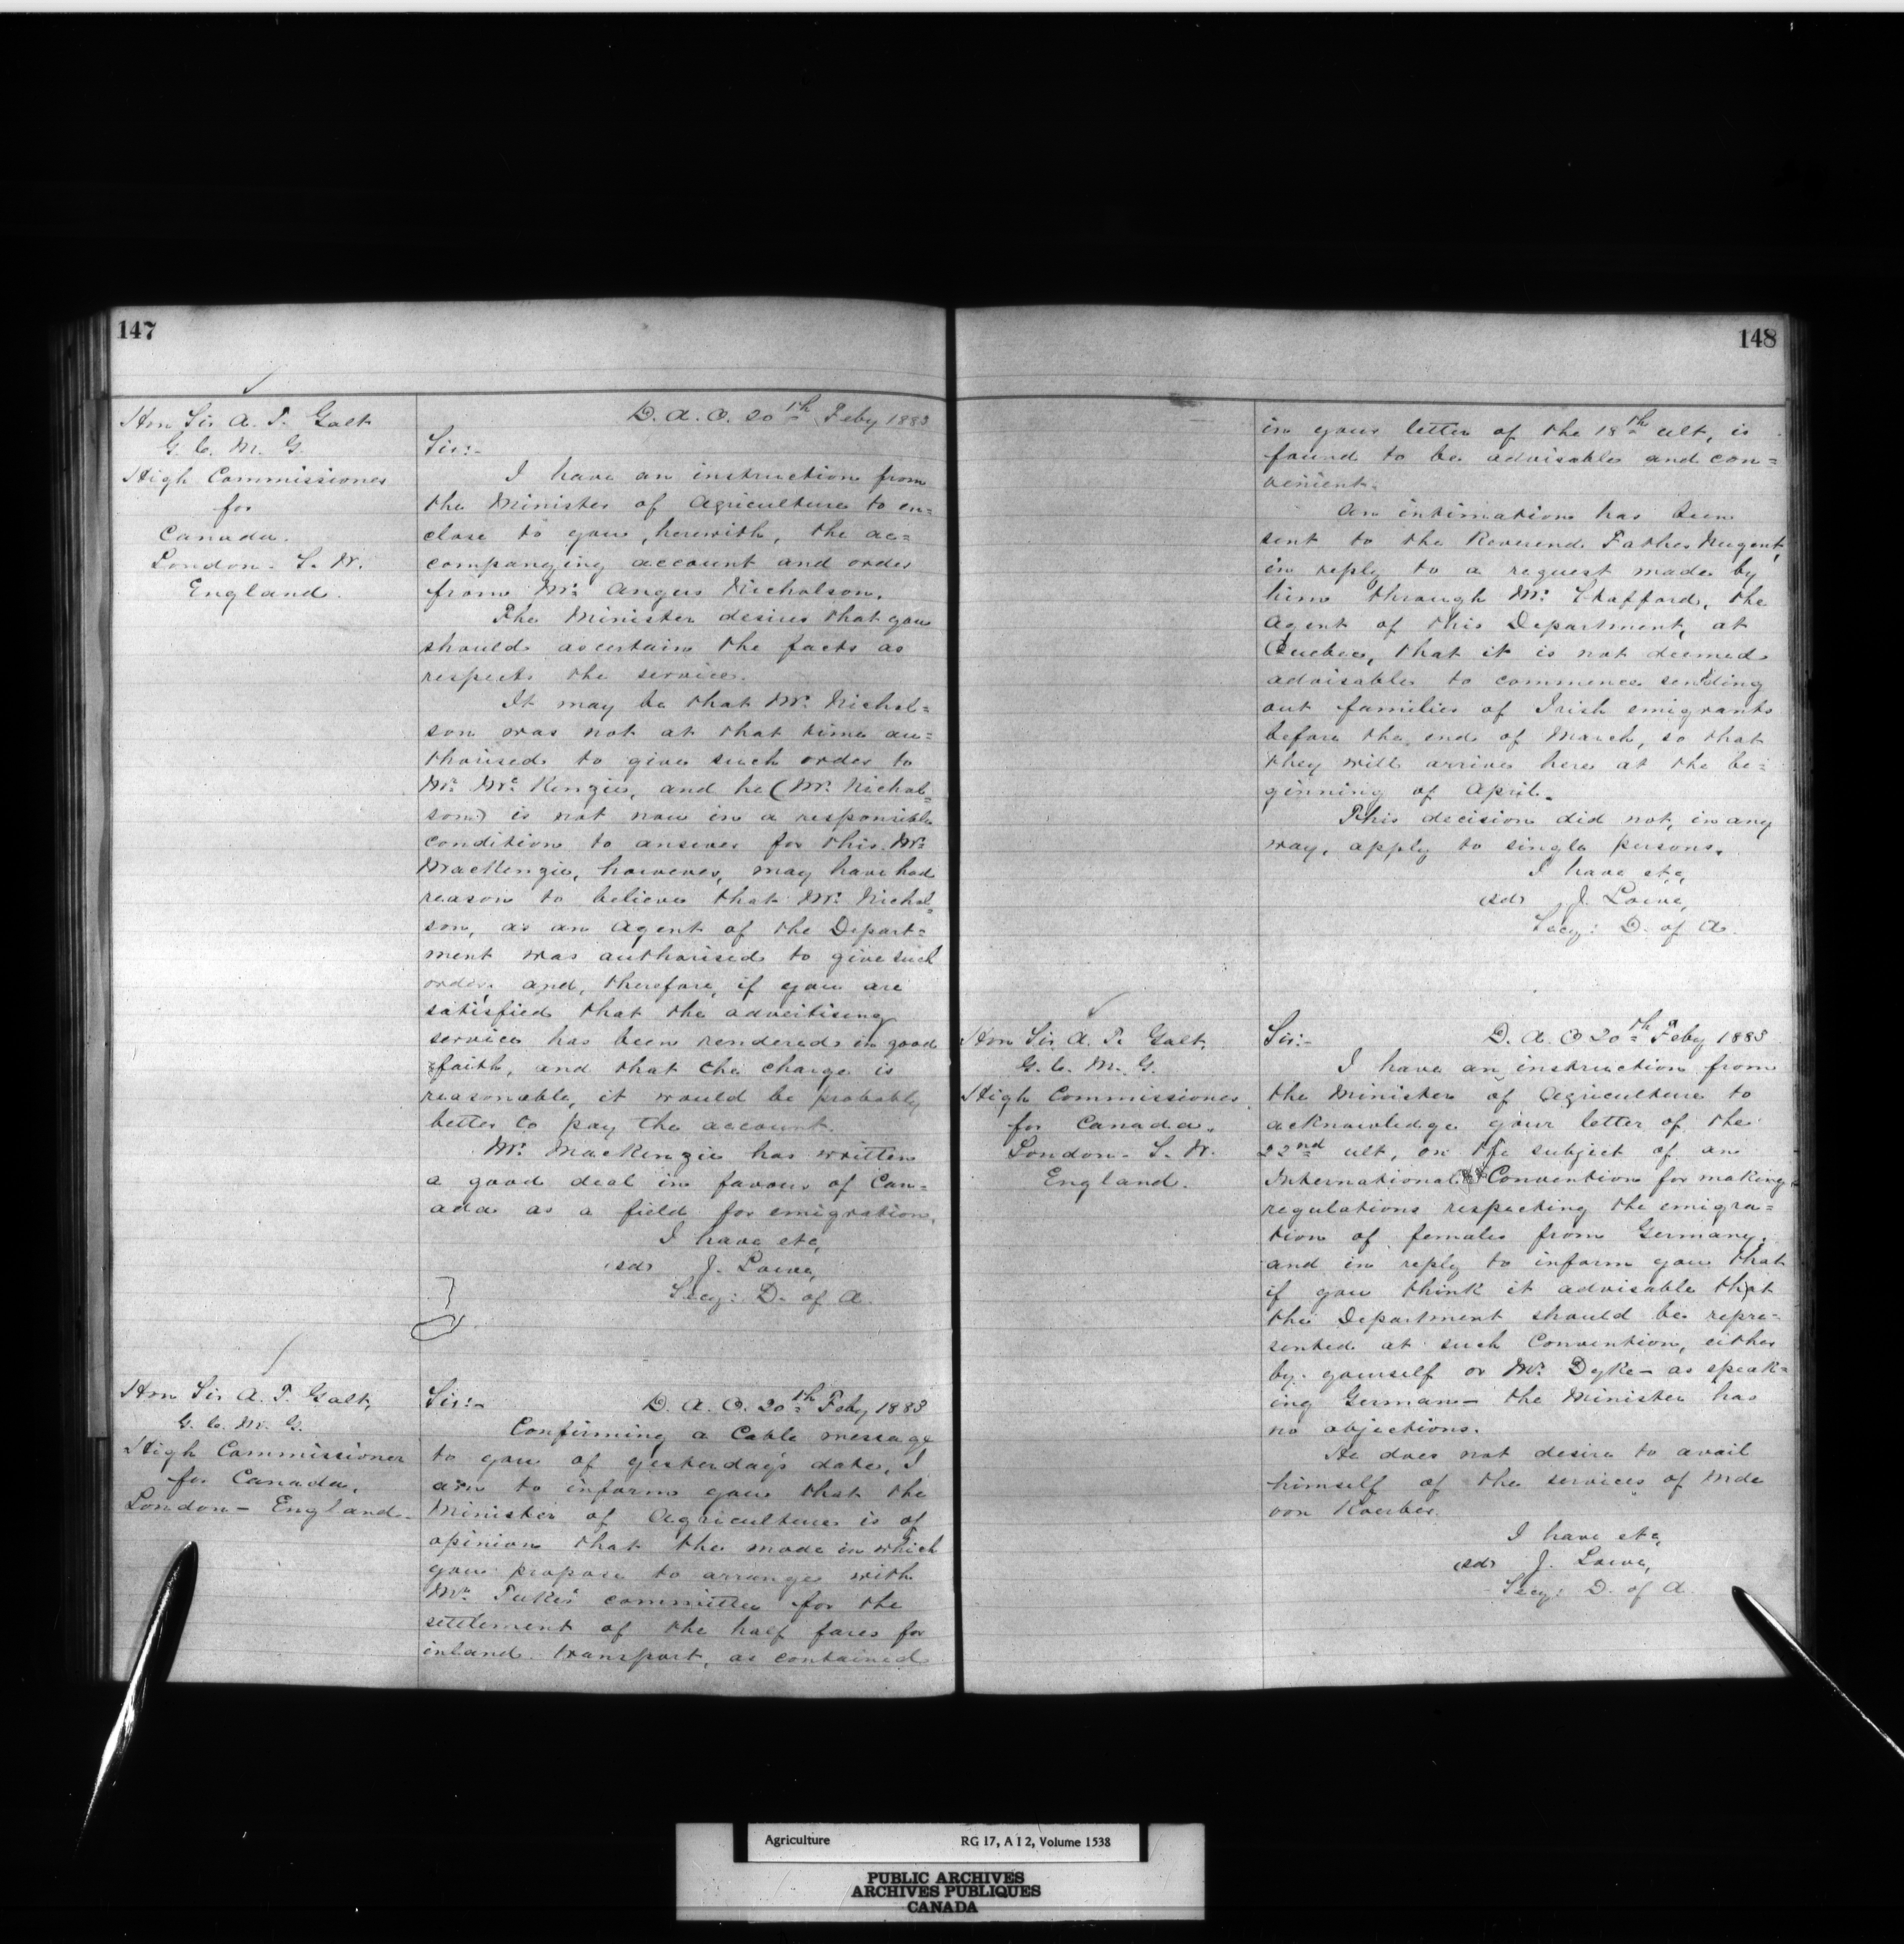 147
Hon Sir A. T. Galt
G. C. M. G.
High Commissioner
for
Canada.
London. S. W.
England.
D. A. O. 20th Feby 1883
Sir:-
I have an instruction from
the Minister of Agriculture to en=
close to you, herewith, the ac=
companying account and order
from Mr. Angus Nicholson.
The Minister desires that you
should ascertain the facts as
respects the service.
It may be that Mr. Nichol=
son was not at that time au=
thorised to give such order to
Mr. McKenzie, and he (Mr. Nichol=
son) is not now in a responsible
condition to answer for this. Mr.
MacKenzie, however, may have had
reason to believe that Mr. Nichol=
son, as an Agent of the Depart=
ment was authorised to give such
order, and, therefore, if you are
satisfied that the advertising
service has been rendered in good
faith, and that the charge is
reasonable, it would be probably
better to pay the account.
Mr. MacKenzie has written
a good deal in favour of Can=
ada as a field for emigration.
I have etc,
(sd) J. Lowe,
Secy: D. of A.
Hon Sir A. T. Galt,
G. C. M. G.
High Commissioner
for Canada.
London - England.
Sir:- D. A. O. 20th Feby 1883
Confirming a Cable message
to you of yesterday's date, I
am to inform you that the
Minister of Agriculture is of
opinion that the mode in which
you propose to arrange with
Mr. Tuke's committee for the
settlement of the half fares for
inland transport, as contained
148
in your letter of the 18th ult, is
found to be advisable and con=
venient.
An intimation has been
sent to the Reverend Father Nugent,
in reply to a request made by
him through Mr. Stafford, the
Agent of this Department, at
Quebec, that it is not deemed
advisable to commence sending
out families of Irish emigrants
before the end of March, so that
they will arrive here at the be=
ginning of April.
This decision did not, in any
way, apply to single persons.
I have etc,
(sd) J. Lowe,
Secy: D. of A.
Hon Sir A. T. Galt,
G. C. M. G.
High Commissioner
for Canada.
London. S. W.
England.
Sir:- D. A. O 20th Feby 1883
I have an instruction from
the Minister of Agriculture to
acknowledge your letter of the
22nd ult, on the subject of an
International Convention for making
regulations respecting the emigra=
tion of females from Germany,
and in reply to inform you that
if you think it advisable that
the Department should be repre=
sented at such Convention, either
by yourself or Mr. Dyke - as speak=
ing German - the Minister has
no objections.
He does not desire to avail
himself of the services of Mde
von Koerber.
I have etc,
(sd) J. Lowe,
Secy: D. of A.
Agriculture RG 17, A I 2, Volume 1538
PUBLIC ARCHIVES
ARCHIVES PUBLIQUES
CANADA